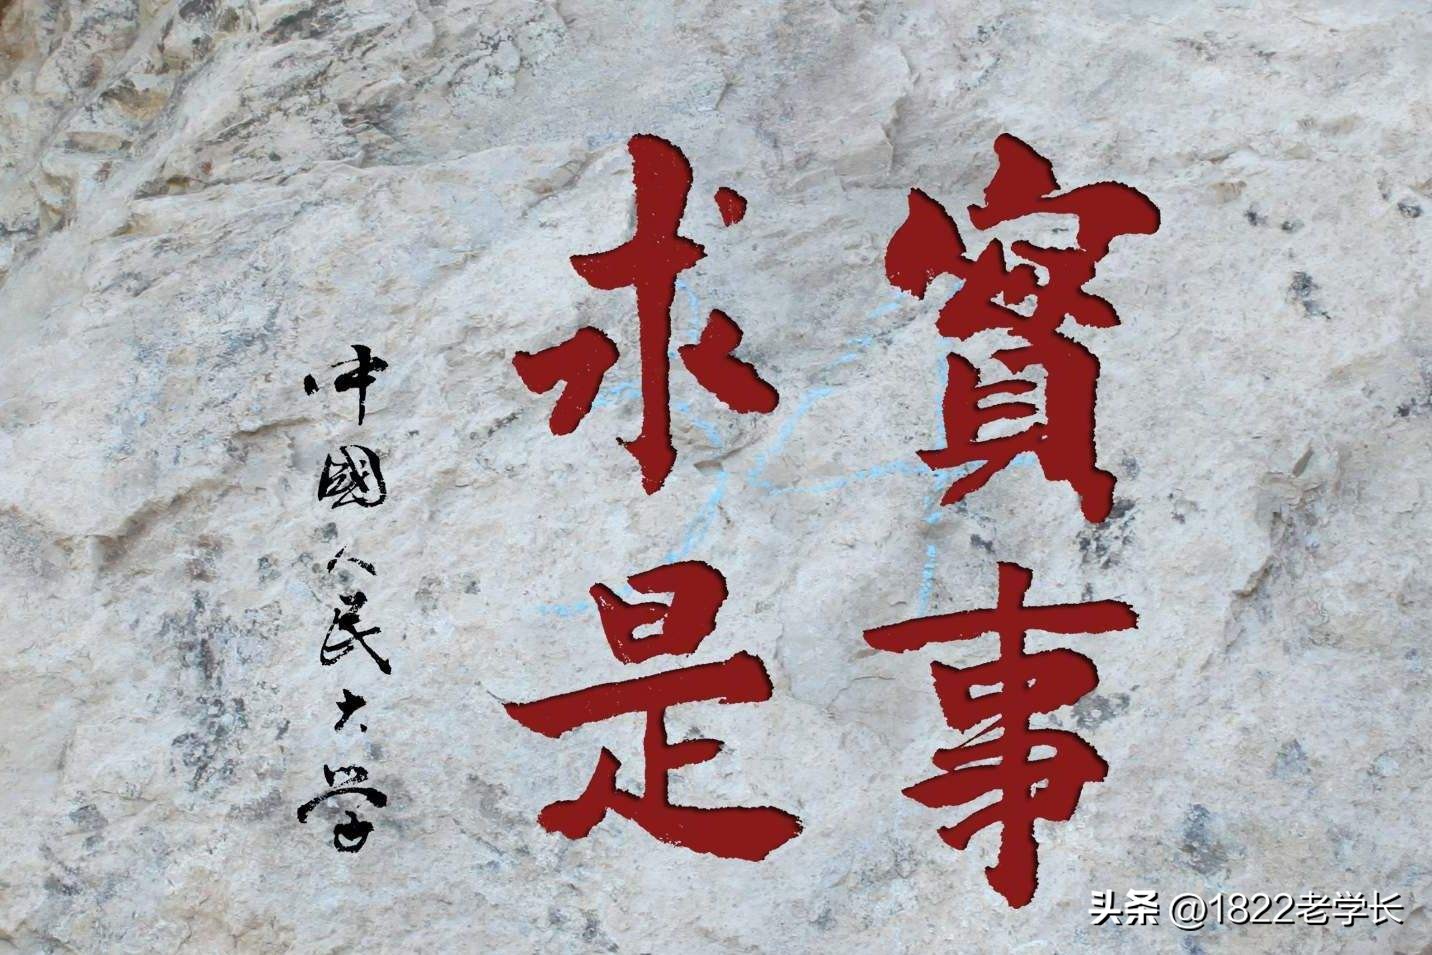 實事
求是
中國人民大学
头条 @1822老学长